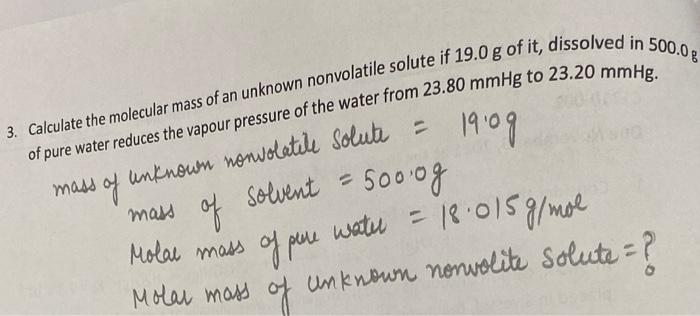 3. Calculate the molecular mass of an unknown nonvolatile solute if 19.0 g of it, dissolved in 500.0 g
of pure water reduces the vapour pressure of the water from 23.80 mmHg to 23.20 mmHg.
mass of unknown nonvolatile solute = 19.0g
mass of solvent = 500.0g
Molar mass of pure water = 18.015g/mol
Molar mass of unknown nonvolite solute = ?